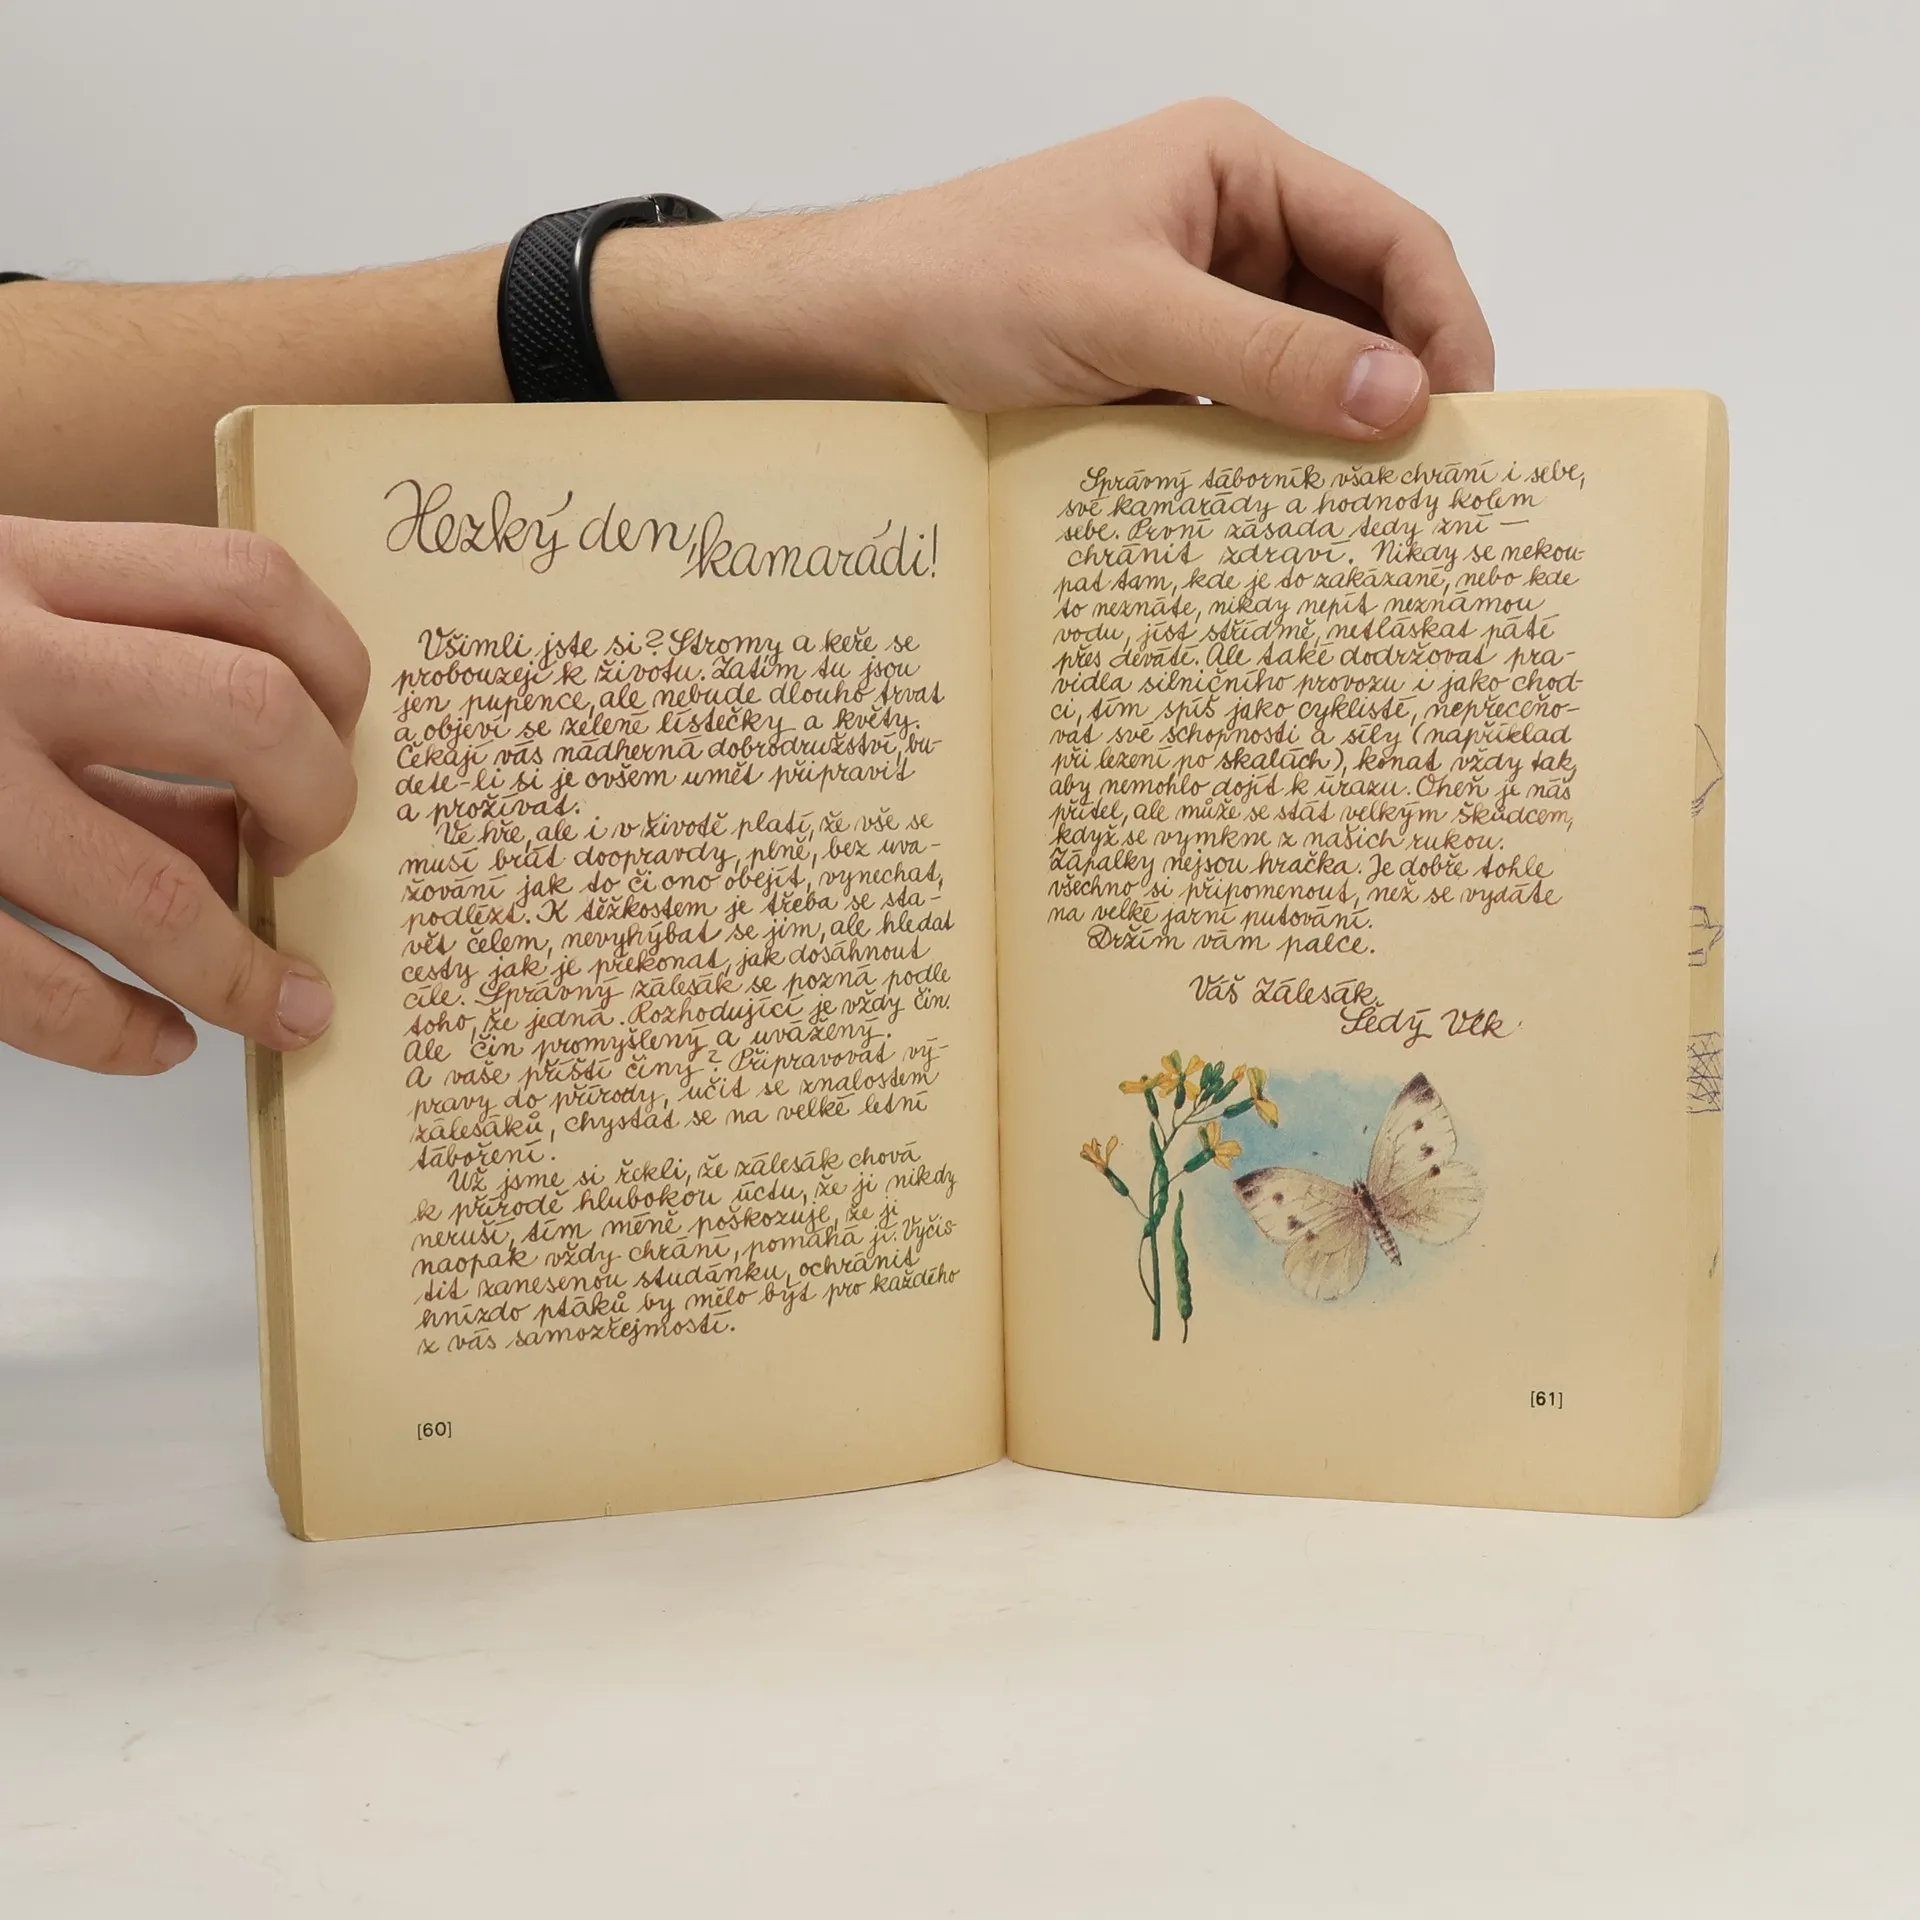 Hezký den,
kamarádi!
Všimli jste si? Stromy a keře se
probouzejí k životu. Zatím tu jsou
jen pupence, ale nebude dlouho trvat
a objeví se zelené lístečky a květy.
Čekají vás nádherná dobrodružství, bu-
dete-li si je ovšem umět připravit
a prožívat.
Ve hře, ale i v životě platí, že vše se
musí brát doopravdy, plně, bez uva-
žování jak to či ono obejít, vynechat,
podlézt. K těžkostem je třeba se sta-
vět čelem, nevyhýbat se jim, ale hledat
cesty jak je překonat, jak dosáhnout
cíle. Správný zálesák se pozná podle
toho, že jedná. Rozhodující je vždy čin.
Ale čin promyšlený a uvážený.
A vaše příští činy? Připravovat vý-
pravy do přírody, učit se znalostem
zálesáků, chystat se na velké letní
táboření.
Už jsme si řekli, že zálesák chová
k přírodě hlubokou úctu, že ji nikdy
neruší, tím méně poškozuje, že ji
naopak vždy chrání, pomáhá jí. Vyčis-
tit zanesenou studánku, ochránit
hnízdo ptáků by mělo být pro každého
z vás samozřejmostí.
[60]
Správný táborník však chrání i sebe,
své kamarády a hodnoty kolem
sebe. První zásada tedy zní —
chránit zdraví. Nikdy se nekou-
pat tam, kde je to zakázané, nebo kde
to neznáte, nikdy nepít neznámou
vodu, jíst střídmě, netláskat páté
přes deváté. Ale také dodržovat pra-
vidla silničního provozu i jako chod-
ci, tím spíš jako cyklisté, nepřeceňo-
vat své schopnosti a síly (například
při lezení po skalách), konat vždy tak,
aby nemohlo dojít k úrazu. Oheň je náš
přítel, ale může se stát velkým škůdcem,
když se vymkne z našich rukou.
Zápalky nejsou hračka. Je dobře tohle
všechno si připomenout, než se vydáte
na velké jarní putování.
Držím vám palce.
Váš Zálesák,
Šedý Vlk
[61]